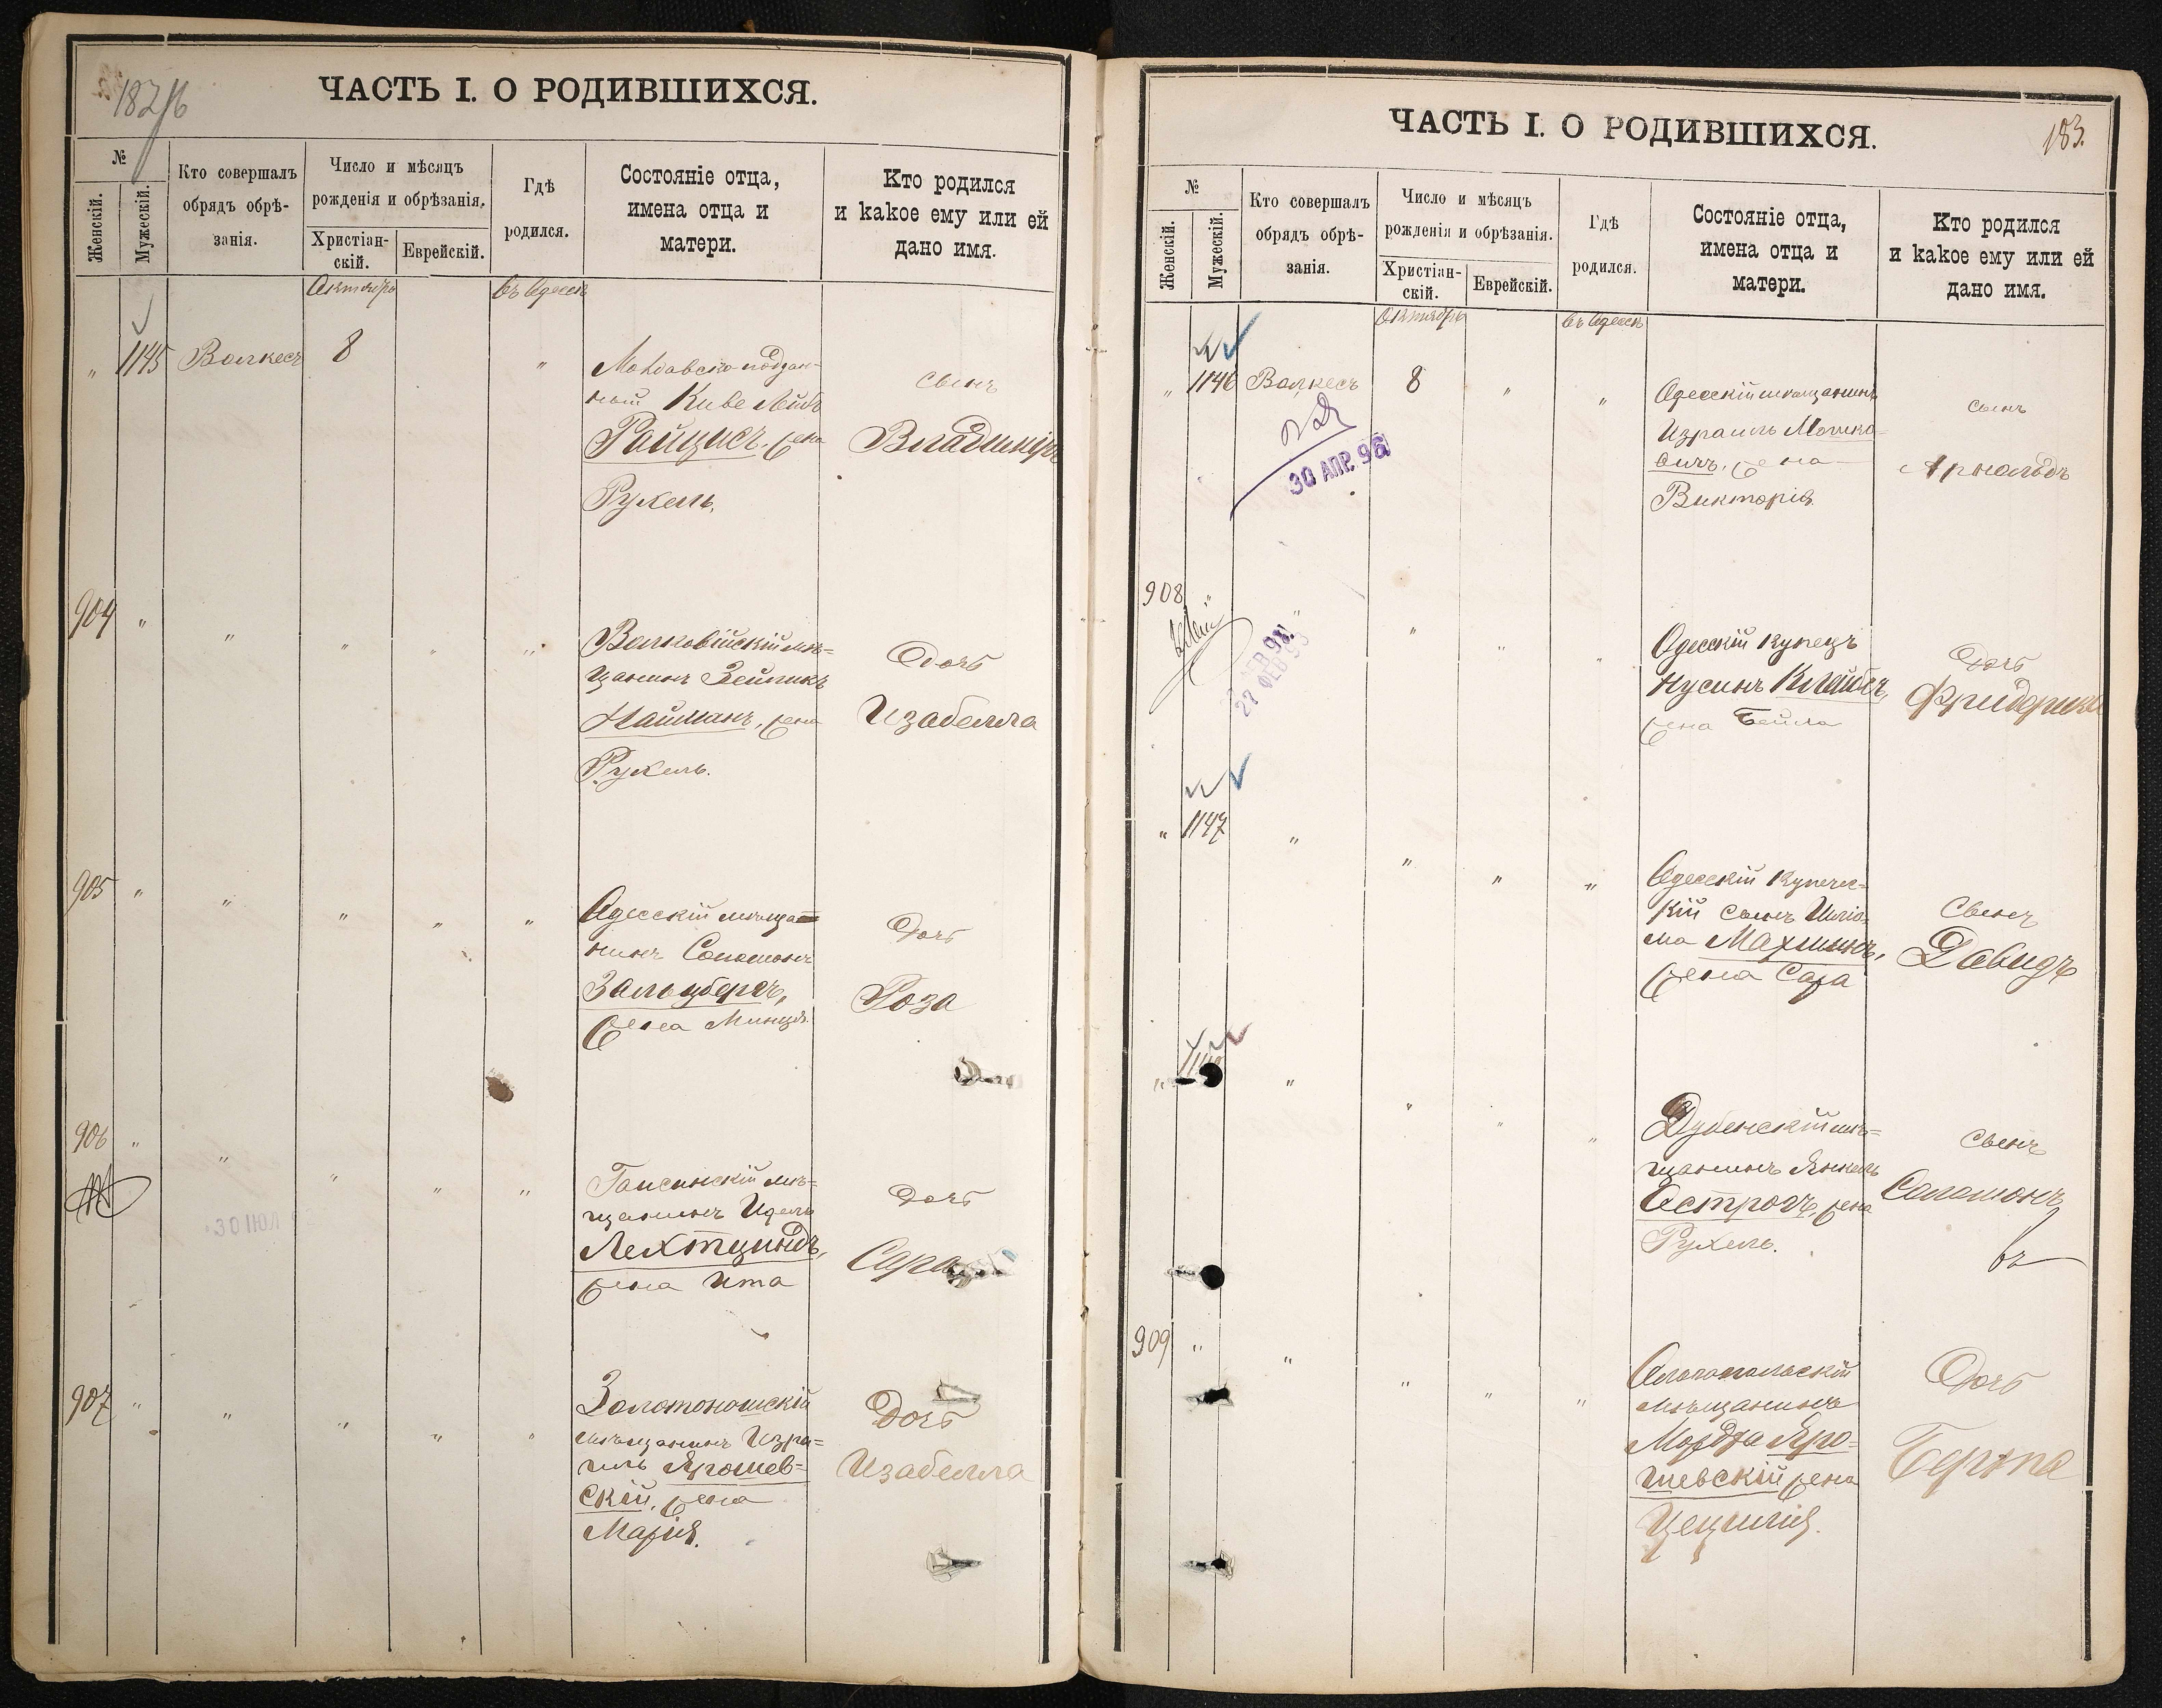 ЧАСТЬ I. О РОДИВШИХСЯ.
№
Женскій.
Мужескій.
Кто совершалъ
обрядъ обрѣ-
занія.
Число и мѣсяцъ
рожденія и обрѣзанія.
Христіан-
скій.
Еврейскій.
Гдѣ
родился.
Состояніе отца,
имена отца и
матери.
Кто родился
и какое ему или ей
дано имя.
Октябрь
въ Одессѣ
" 1145 Валкесъ 8 "
Молдавско-поддан-
ный Киве Лейбъ
жена
Рухель.
сынъ
Владиміръ
904 " " " " "
мѣ=
щанинъ Зейликъ
Найманъ, жена
Рухель.
Дочь
Изабелла
905 " " " " "
Одесскій мѣща=
нинъ Соломонъ
Зальцбергъ,
жена
Дочь
Роза
906 " " " " "
30 ІЮЛ
Гайсинскій мѣ=
щанинъ
Лехтциндъ,
жена Ита
Дочь
Сара
907 " " " " "
Золотоношскій
мѣщанинъ Изра=
иль Ярошев=
скій, жена
Марія.
Дочь
Изабелла
ЧАСТЬ I. О РОДИВШИХСЯ.
183.
№
Женскій.
Мужескій.
Кто совершалъ
обрядъ обрѣ-
занія.
Число и мѣсяцъ
рожденія и обрѣзанія.
Христіан-
скій.
Еврейскій.
Гдѣ
родился.
Состояніе отца,
имена отца и
матери.
Кто родился
и какое ему или ей
дано имя.
Октябрь
въ Одессѣ
" 1146 Валкесъ 8 " "
30 АПР. 96
Одесскій мѣщанинъ
Израиль Мошко=
вичъ, жена
Викторія.
сынъ
Арнольдъ
908 " " " " "
27 ФЕВ 95
Одесскій купецъ
Нусинъ Клейберъ,
жена Бейла
Дочь
Фридерика
" 1147 " " " "
Одесскій купечес=
кій сынъ Шліо=
ма Махлинъ,
жена Сара
Сынъ
Давидъ
" " " " "
Дубенскій мѣ=
щанинъ Янкель
Острогъ, жена
Рухель.
Сынъ
Соломонъ
909 " " " " "
Ольгопольскій
мѣщанинъ
Мордха Яро=
шевскій, жена
Цецилія.
Дочь
Берта